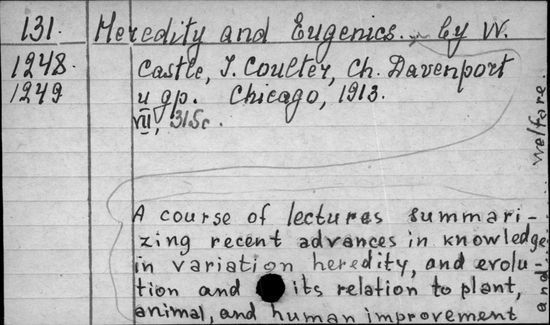 131. Heredity and Eugenics. by W.
1248. Castle, J. Coulter, Ch. Davenport
1249 u gp. Chicago, 1913.
VII, 315c.
A course of lectures summari-
zing recent advances in knowledge
in variation heredity, and evolu-
tion and its relation to plant,
animal, and human improvement
and welfare.